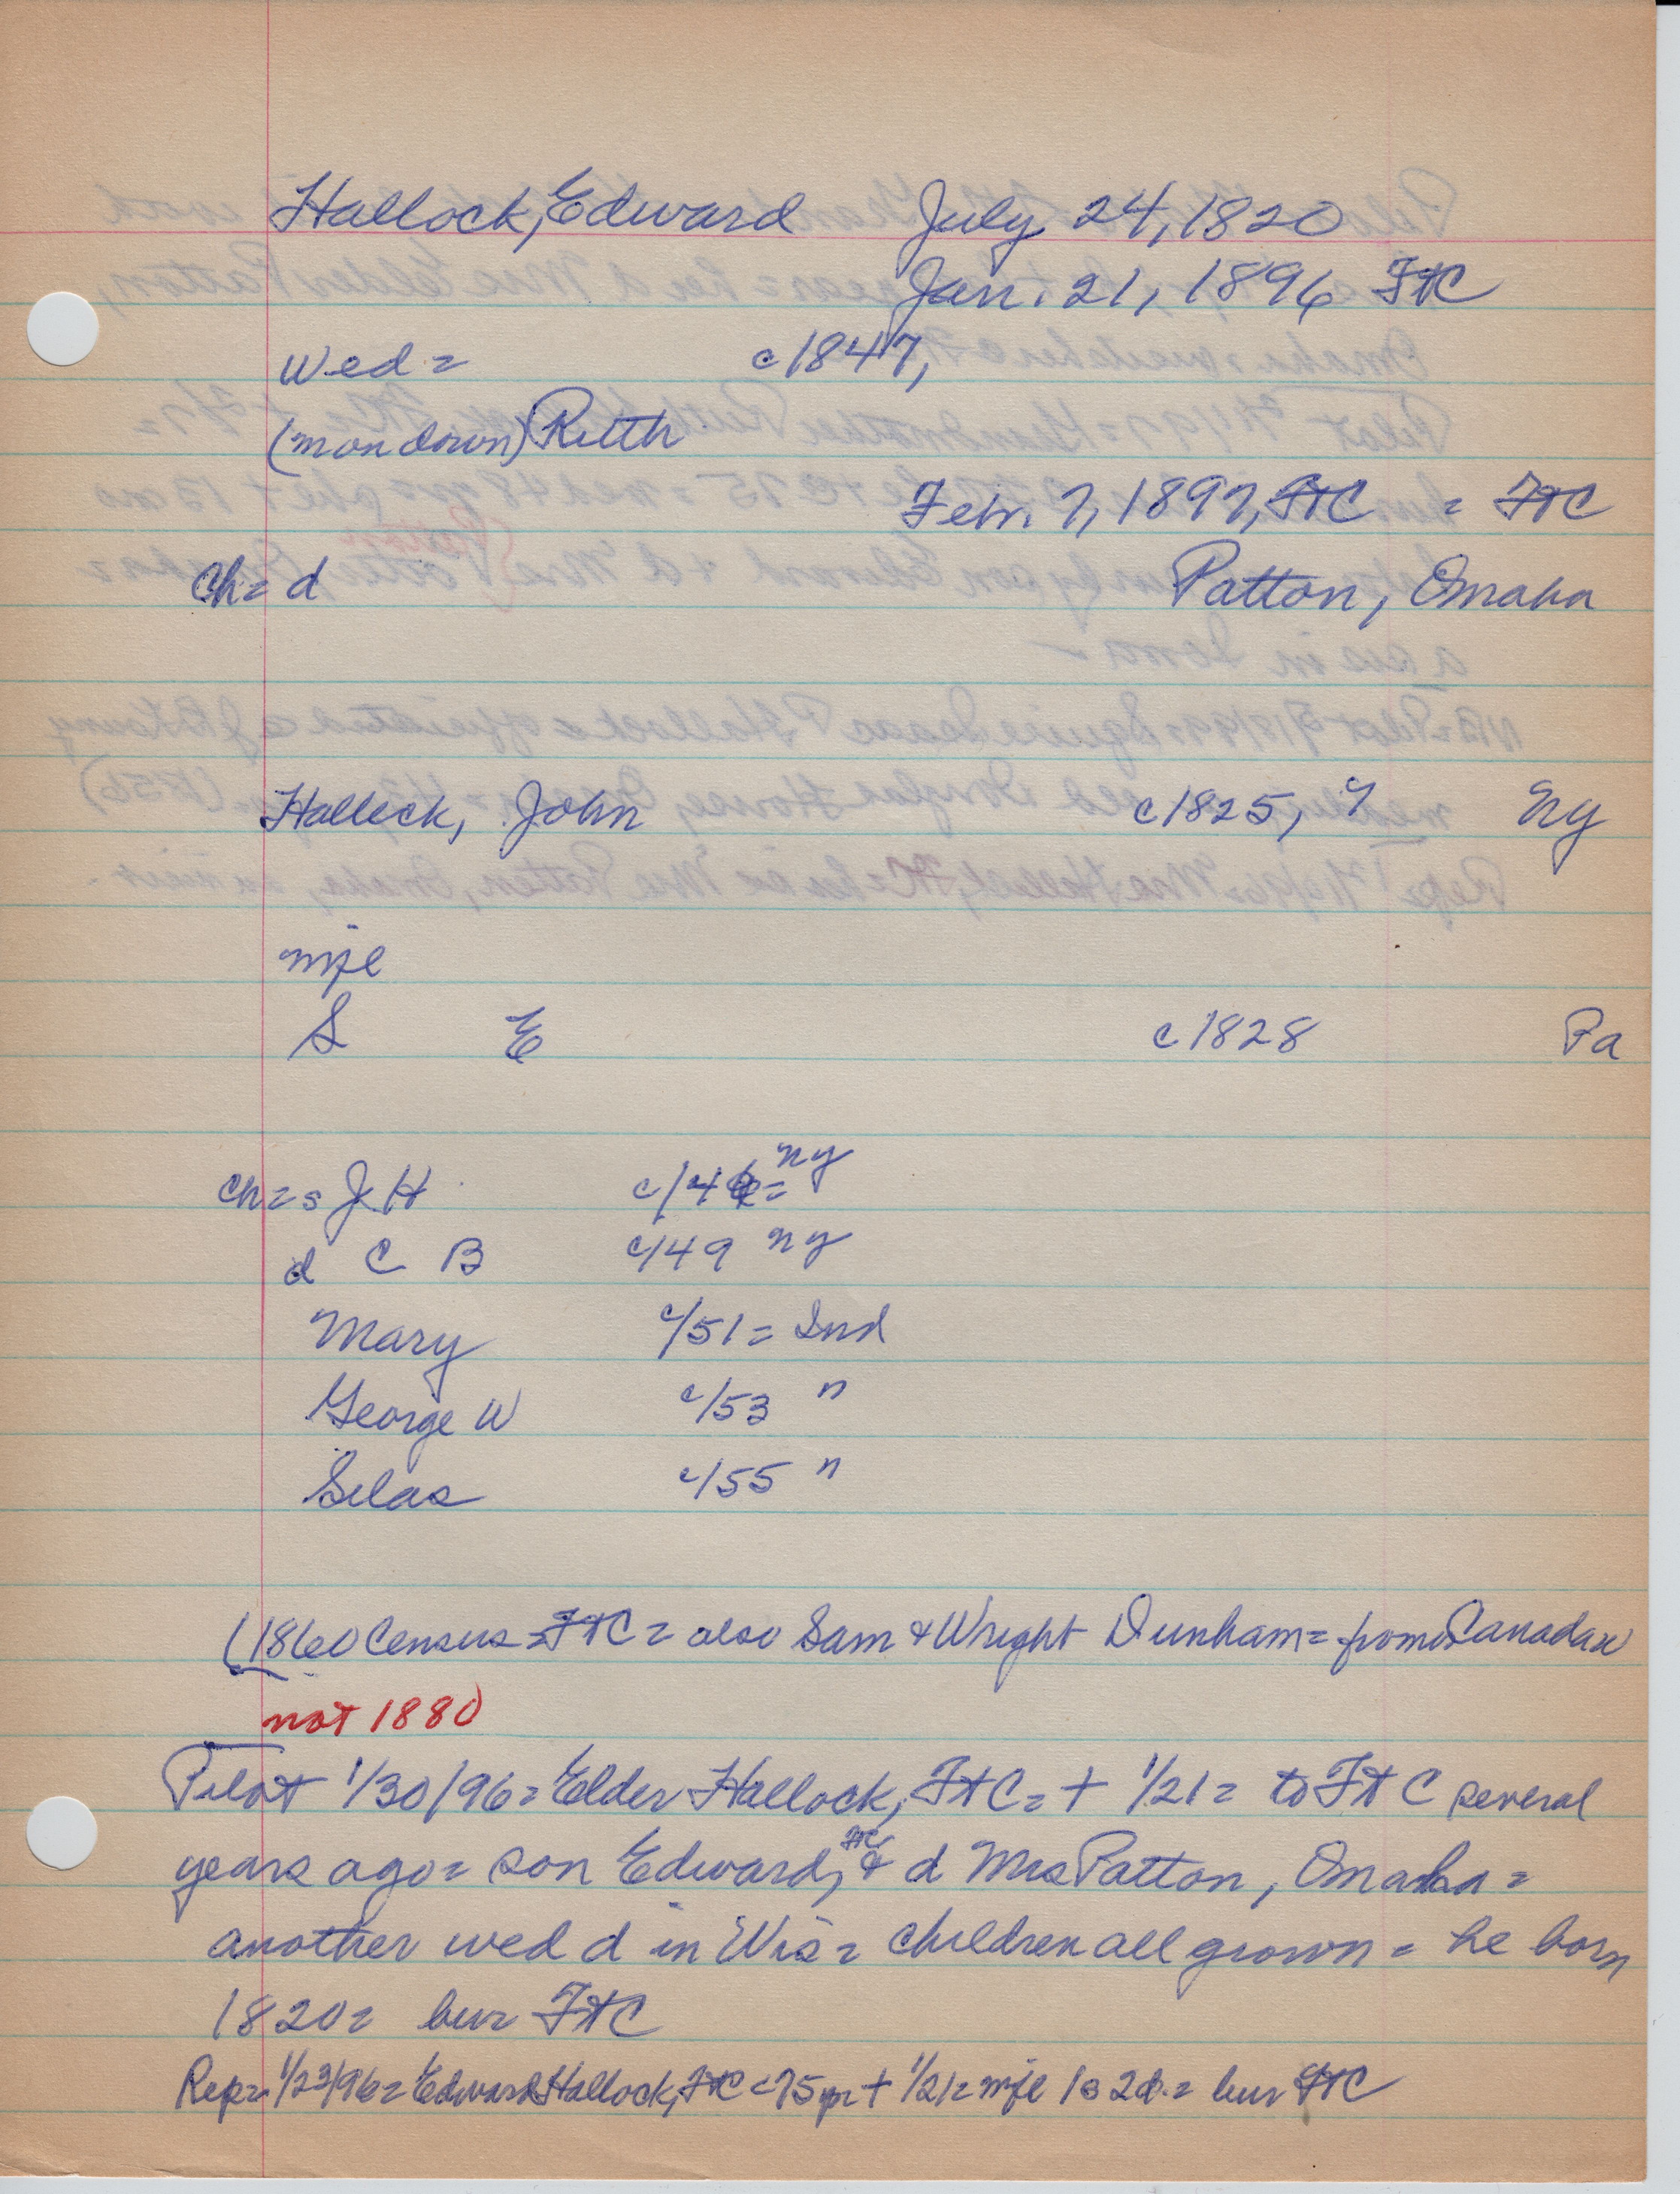 Hallock, Edward July 24, 1820
Jan. 21, 1896 FtC
Wed = c1847,
(mon down) Ruth
Febr. 7, 1897, FtC = FtC
Ch = d Patton, Omaha
Halleck, John c1825, ? Ny
mfe
S E c1828 Pa
Ch = s J H c/4 = ny
d C B c/49 ny
Mary c/51 = Ind
George W c/53 "
Silas c/55 "
(1860 Census = FtC = also Sam & Wright Dunham = from Canada
not 1880
Pilot 1/30/96 = Elder Hallock, FtC = + 1/21 = to FtC several
years ago = son Edward, FtC & d Mrs Patton, Omaha =
another wed d in Wis = children all grown = he born
1820 = bur FtC
Rep = 1/23/96 = Edward Hallock, FtC = 75 yr + 1/21 = mfe 1s 2d = bur FtC